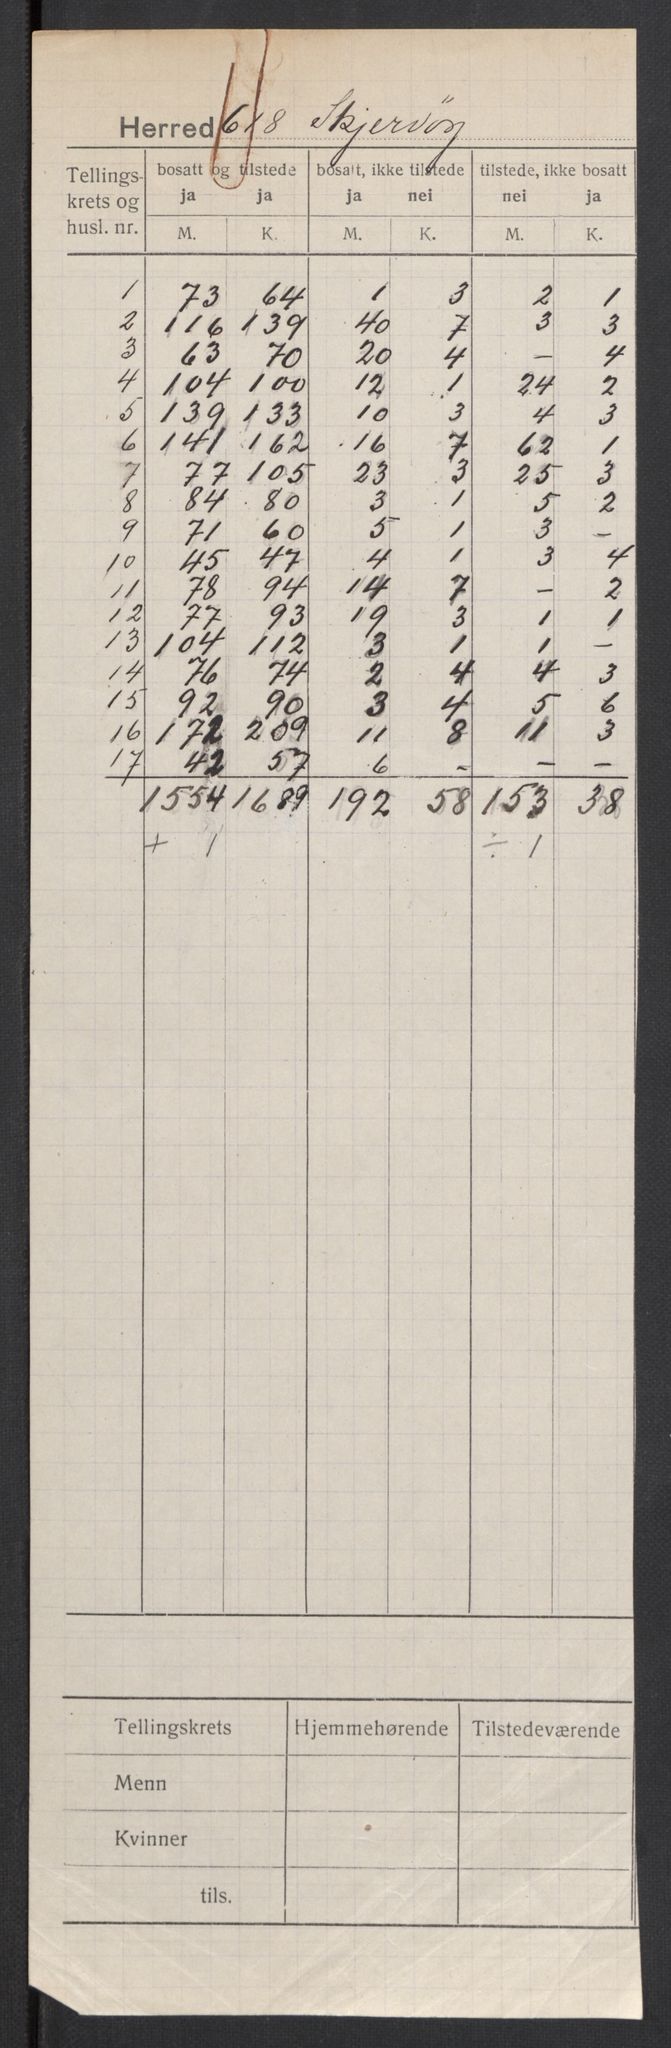 Herred 618 Skjervöy
Tellings- krets og husl. nr. bosatt og tilstede bosatt, ikke tilstede tilstede, ikke bosatt
ja ja ja nei nei ja
M. K. M. K. M. K.
1 73 64 1 3 2 1
2 116 139 40 7 3 3
3 63 70 20 4 – 4
4 104 100 12 1 24 2
5 139 133 10 3 4 3
6 141 162 16 7 62 1
7 77 105 23 3 25 3
8 84 80 3 1 5 2
9 71 60 5 1 3 –
10 45 47 4 1 3 4
11 78 94 14 7 – 2
12 77 93 19 3 1 1
13 104 112 3 1 1 –
14 76 74 2 4 4 3
15 92 90 3 4 5 6
16 172 209 11 8 11 3
17 42 57 6 – – –
1554 1689 192 58 153 38
+ 1 ÷ 1
Tellingskrets Hjemmehørende Tilstedeværende
Menn
Kvinner
tils.